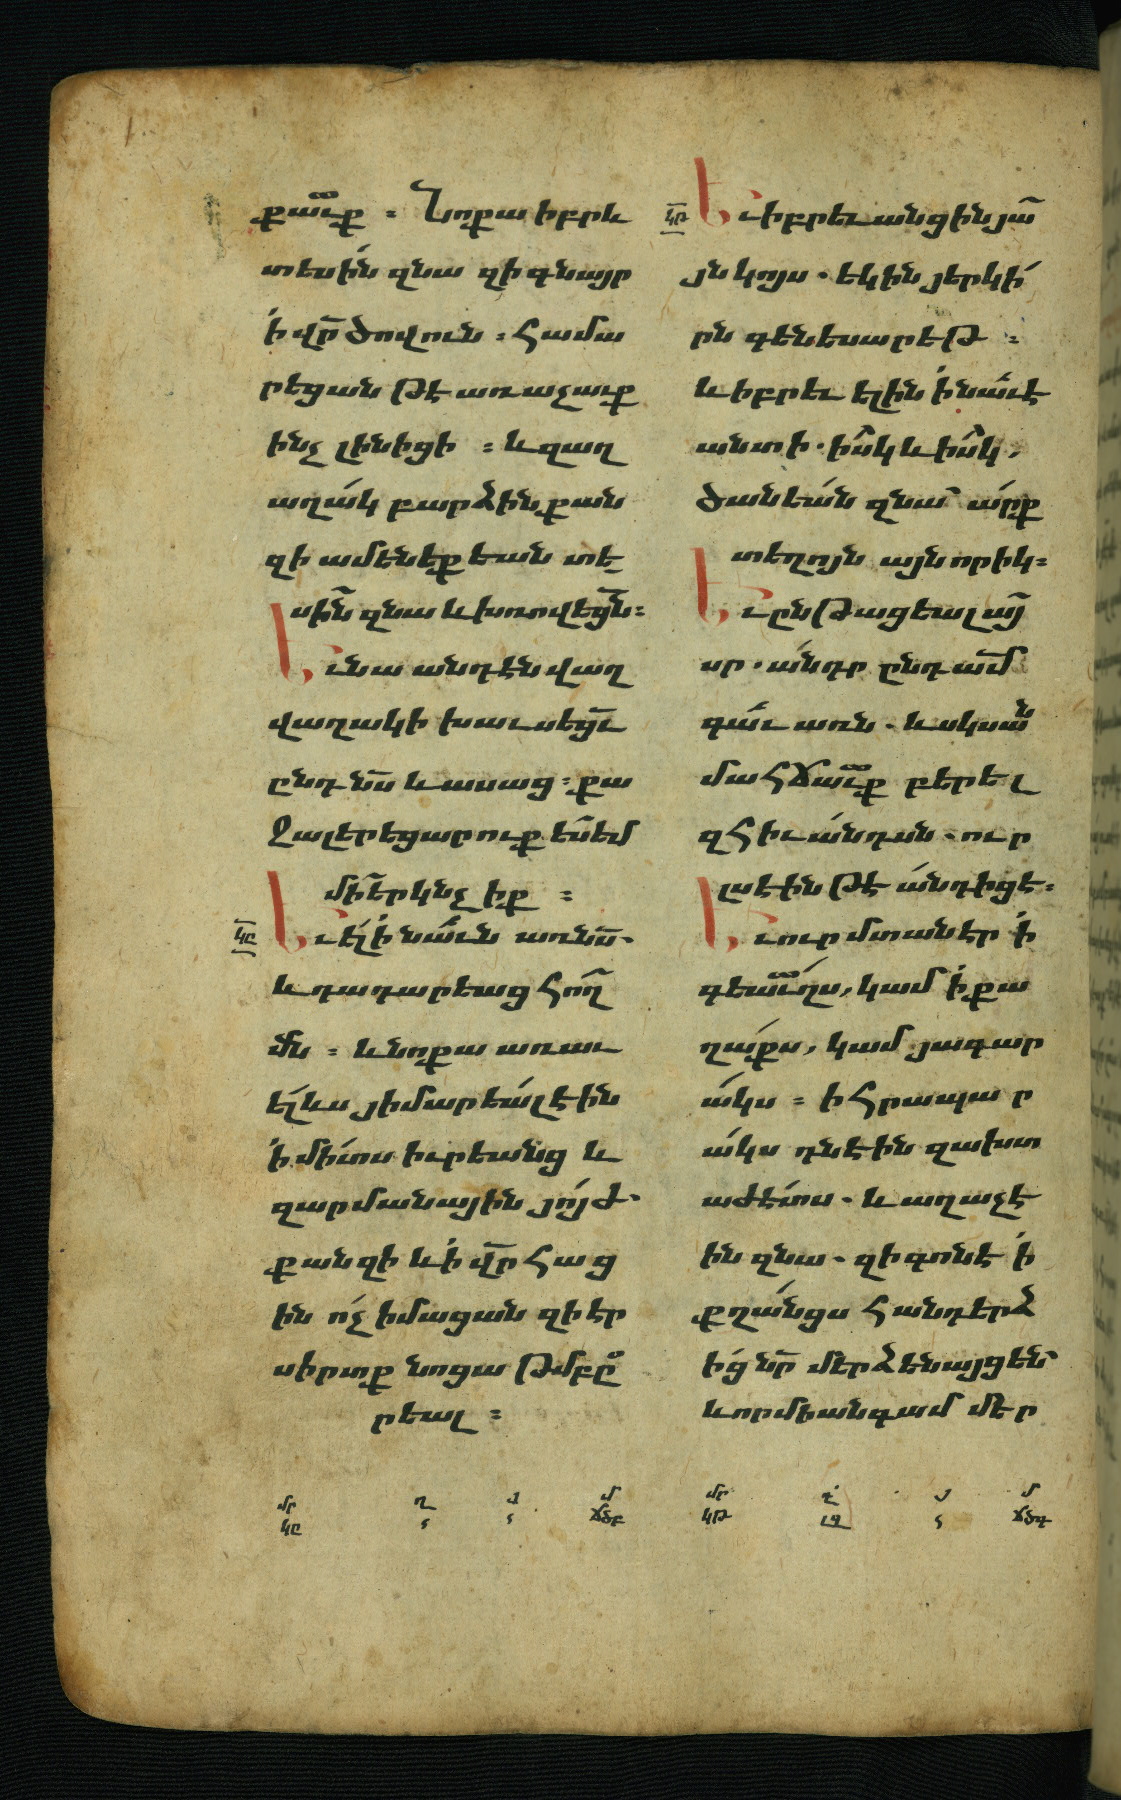 քաւ̃ք ։ Նոքա իբրև
տեսին զնա զի գնայր
ի վր̃ ծովուն ։ համա
րեցան թէ առ աչաւք
ինչ լինիցի ։ և զաղ
աղակ բարձին քան
զի ամենեքեան տե
սին̃ զնա և խռովեցն̃ ։
Եւ նա անդէն վաղ
վաղակի խաւսեցւ̃
ընդ նս̃ և ասաց ։ քա
ջալերեցարուք ես̃ եմ
մի̃ երկնչիք ։
կը
Եւ ել ի նաւն առ նս̃ ․
և դադարեաց հող̃
մն ։ և նոքա առաւ
ել ևս յիմարեալ էին
ի միտս իւրեանց և
զարմանային յոյժ ․
քանզի և ի վր̃ հաց
ին ոչ իմացան զի էր
սիրտք նոցա թմբը
րեալ ։
կթ
Եւ իբրեւ անցին յայ̃
յն կոյս ․ եկին յերկի
րն գենեսարեթ ։
և իբրեւ ելին ի նաւէ
անտի ․ իսկ և իսկ,
ծանեան զնա արք
տեղոյն այնորիկ ։
Եւ ընթացեալ այ̃
սր ․ անդր ընդ ամ̃
գաւառն ․ և սկսան̃
մահճաւ̃ք բերել
զհիւանդսն ․ ուր
լսէին թէ անդ իցէ ։
Եւ ուր մտանէր ի
գեաւ̃ղս, կամ ի քա
ղաքս, կամ յագար
ակս ։ ի հրապար
ակս դնէին զախտ
աժետս ․ և աղաչէ
ին զնա ․ զի գոնէ ի
քղանցս հանդերձ
ից նր̃ մերձենայցեն
և որ միանգամ մեր